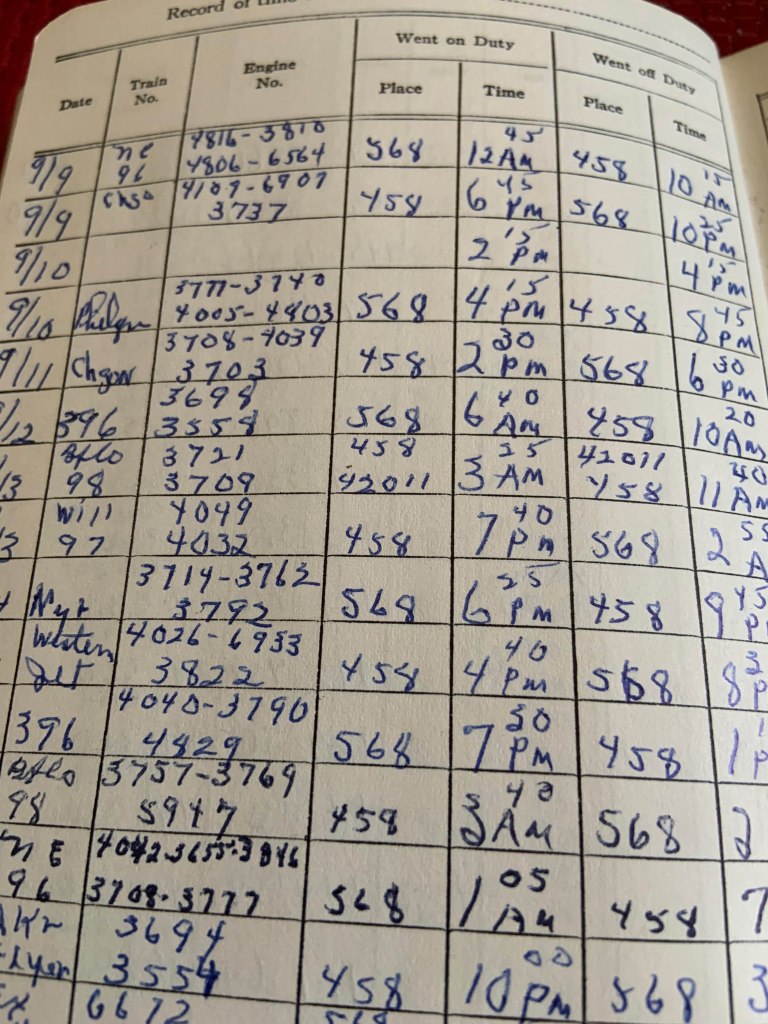 Record of time
Went on Duty Went off Duty
Date Train No. Engine No. Place Time Place Time
4816-3810 45 15
9/9 NE 96 4806-6564 568 12 AM 458 10 AM
4109-6907 45 25
9/9 3737 458 6 PM 568 10 PM
15 15
9/10 2 PM 4 PM
3777-3740 15 45
9/10 4005-4803 568 4 PM 458 8 PM
3708-4039 30 30
9/11 3703 458 2 PM 568 6 PM
3698 40 20
/12 396 3558 568 6 AM 458 10 AM
Bflo 3721 458 25 42011
3 98 3709 42011 3 AM 458 11 AM
Will 4049 40 55
3 97 4032 458 7 PM 568 2 A
3714-3762 25 45
3792 568 6 PM 458 9 P
Western 4026-6933 40 3
Jet 3822 458 4 PM 568 8 P
4040-3790 30 1
396 4829 568 7 PM 458 1 P
Bflo 3757-3769 40
98 5947 458 3 AM 568 2
NE 4042-3655-3846 05
96 3708-3777 568 1 AM 458 7
Akr 3694 00
Flyer 3554 458 10 PM 568 3
6672 568